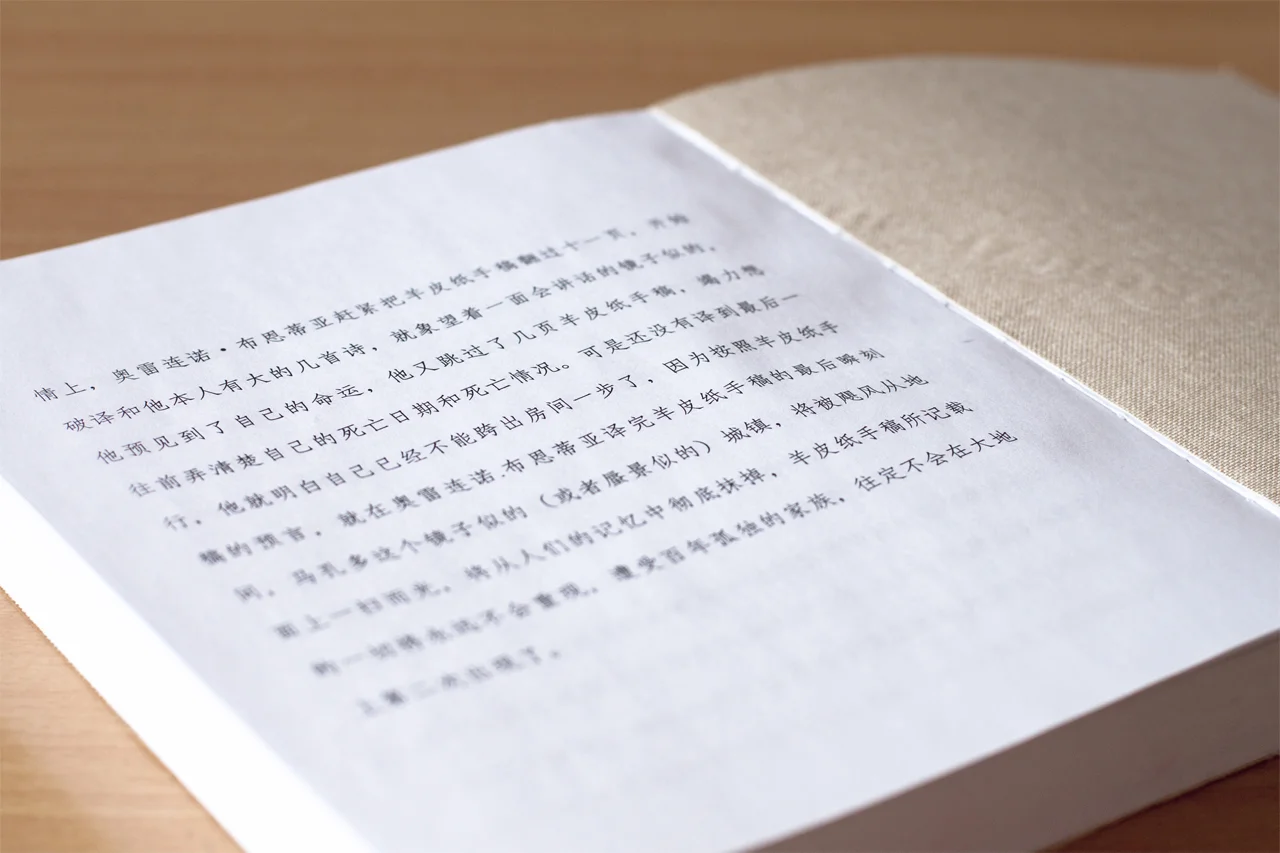 情上，奥雷连诺·布恩蒂亚赶紧把羊皮纸手稿翻过十一页，开始
破译和他本人有大的几首诗，就象望着一面会讲话的镜子似的，
他预见到了自己的命运，他又跳过了几页羊皮纸手稿，竭力想
往前弄清楚自己的死亡日期和死亡情况。可是还没有译到最后一
行，他就明白自己已经不能跨出房间一步了，因为按照羊皮纸手
稿的预言，就在奥雷连诺·布恩蒂亚译完羊皮纸手稿的最后瞬刻
间，马孔多这个镜子似的（或者蜃景似的）城镇，将被飓风从地
面上一扫而光，将从人们的记忆中彻底抹掉，羊皮纸手稿所记载
的一切将永远不会重现，遭受百年孤独的家族，往定不会在大地
上第二次出现了。